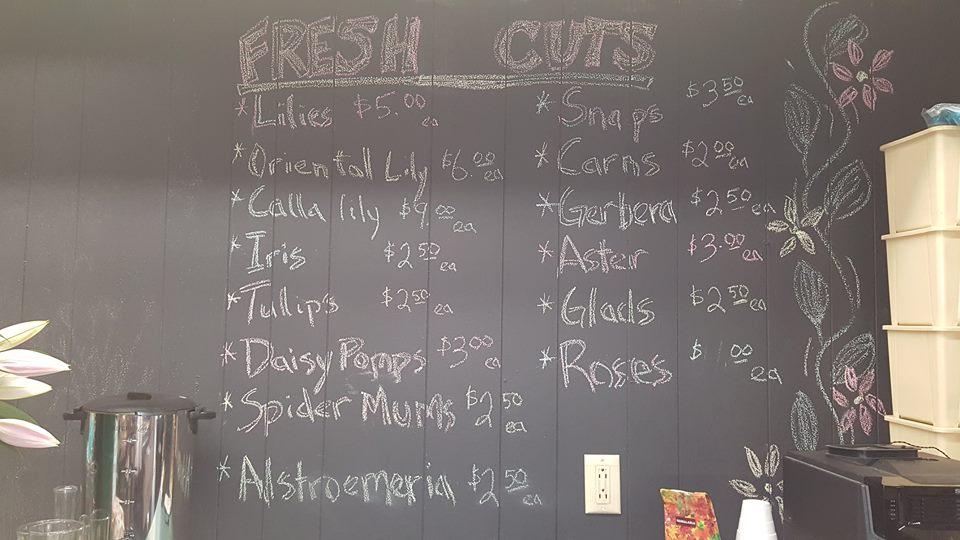 FRESH CUTS
* Lilies $5.00 ea
* Oriental Lily $6.00 ea
* Calla lily $9.00 ea
* Iris $2.50 ea
* Tullips $2.50 ea
* Daisy Pomps $3.00 ea
* Spider Mums $2.50 ea
* Alstroemeria $2.50 ea
* Snaps $3.50 ea
* Carns $2.00 ea
* Gerbera $2.50 ea
* Aster $3.00 ea
* Glads $2.50 ea
* Roses ea